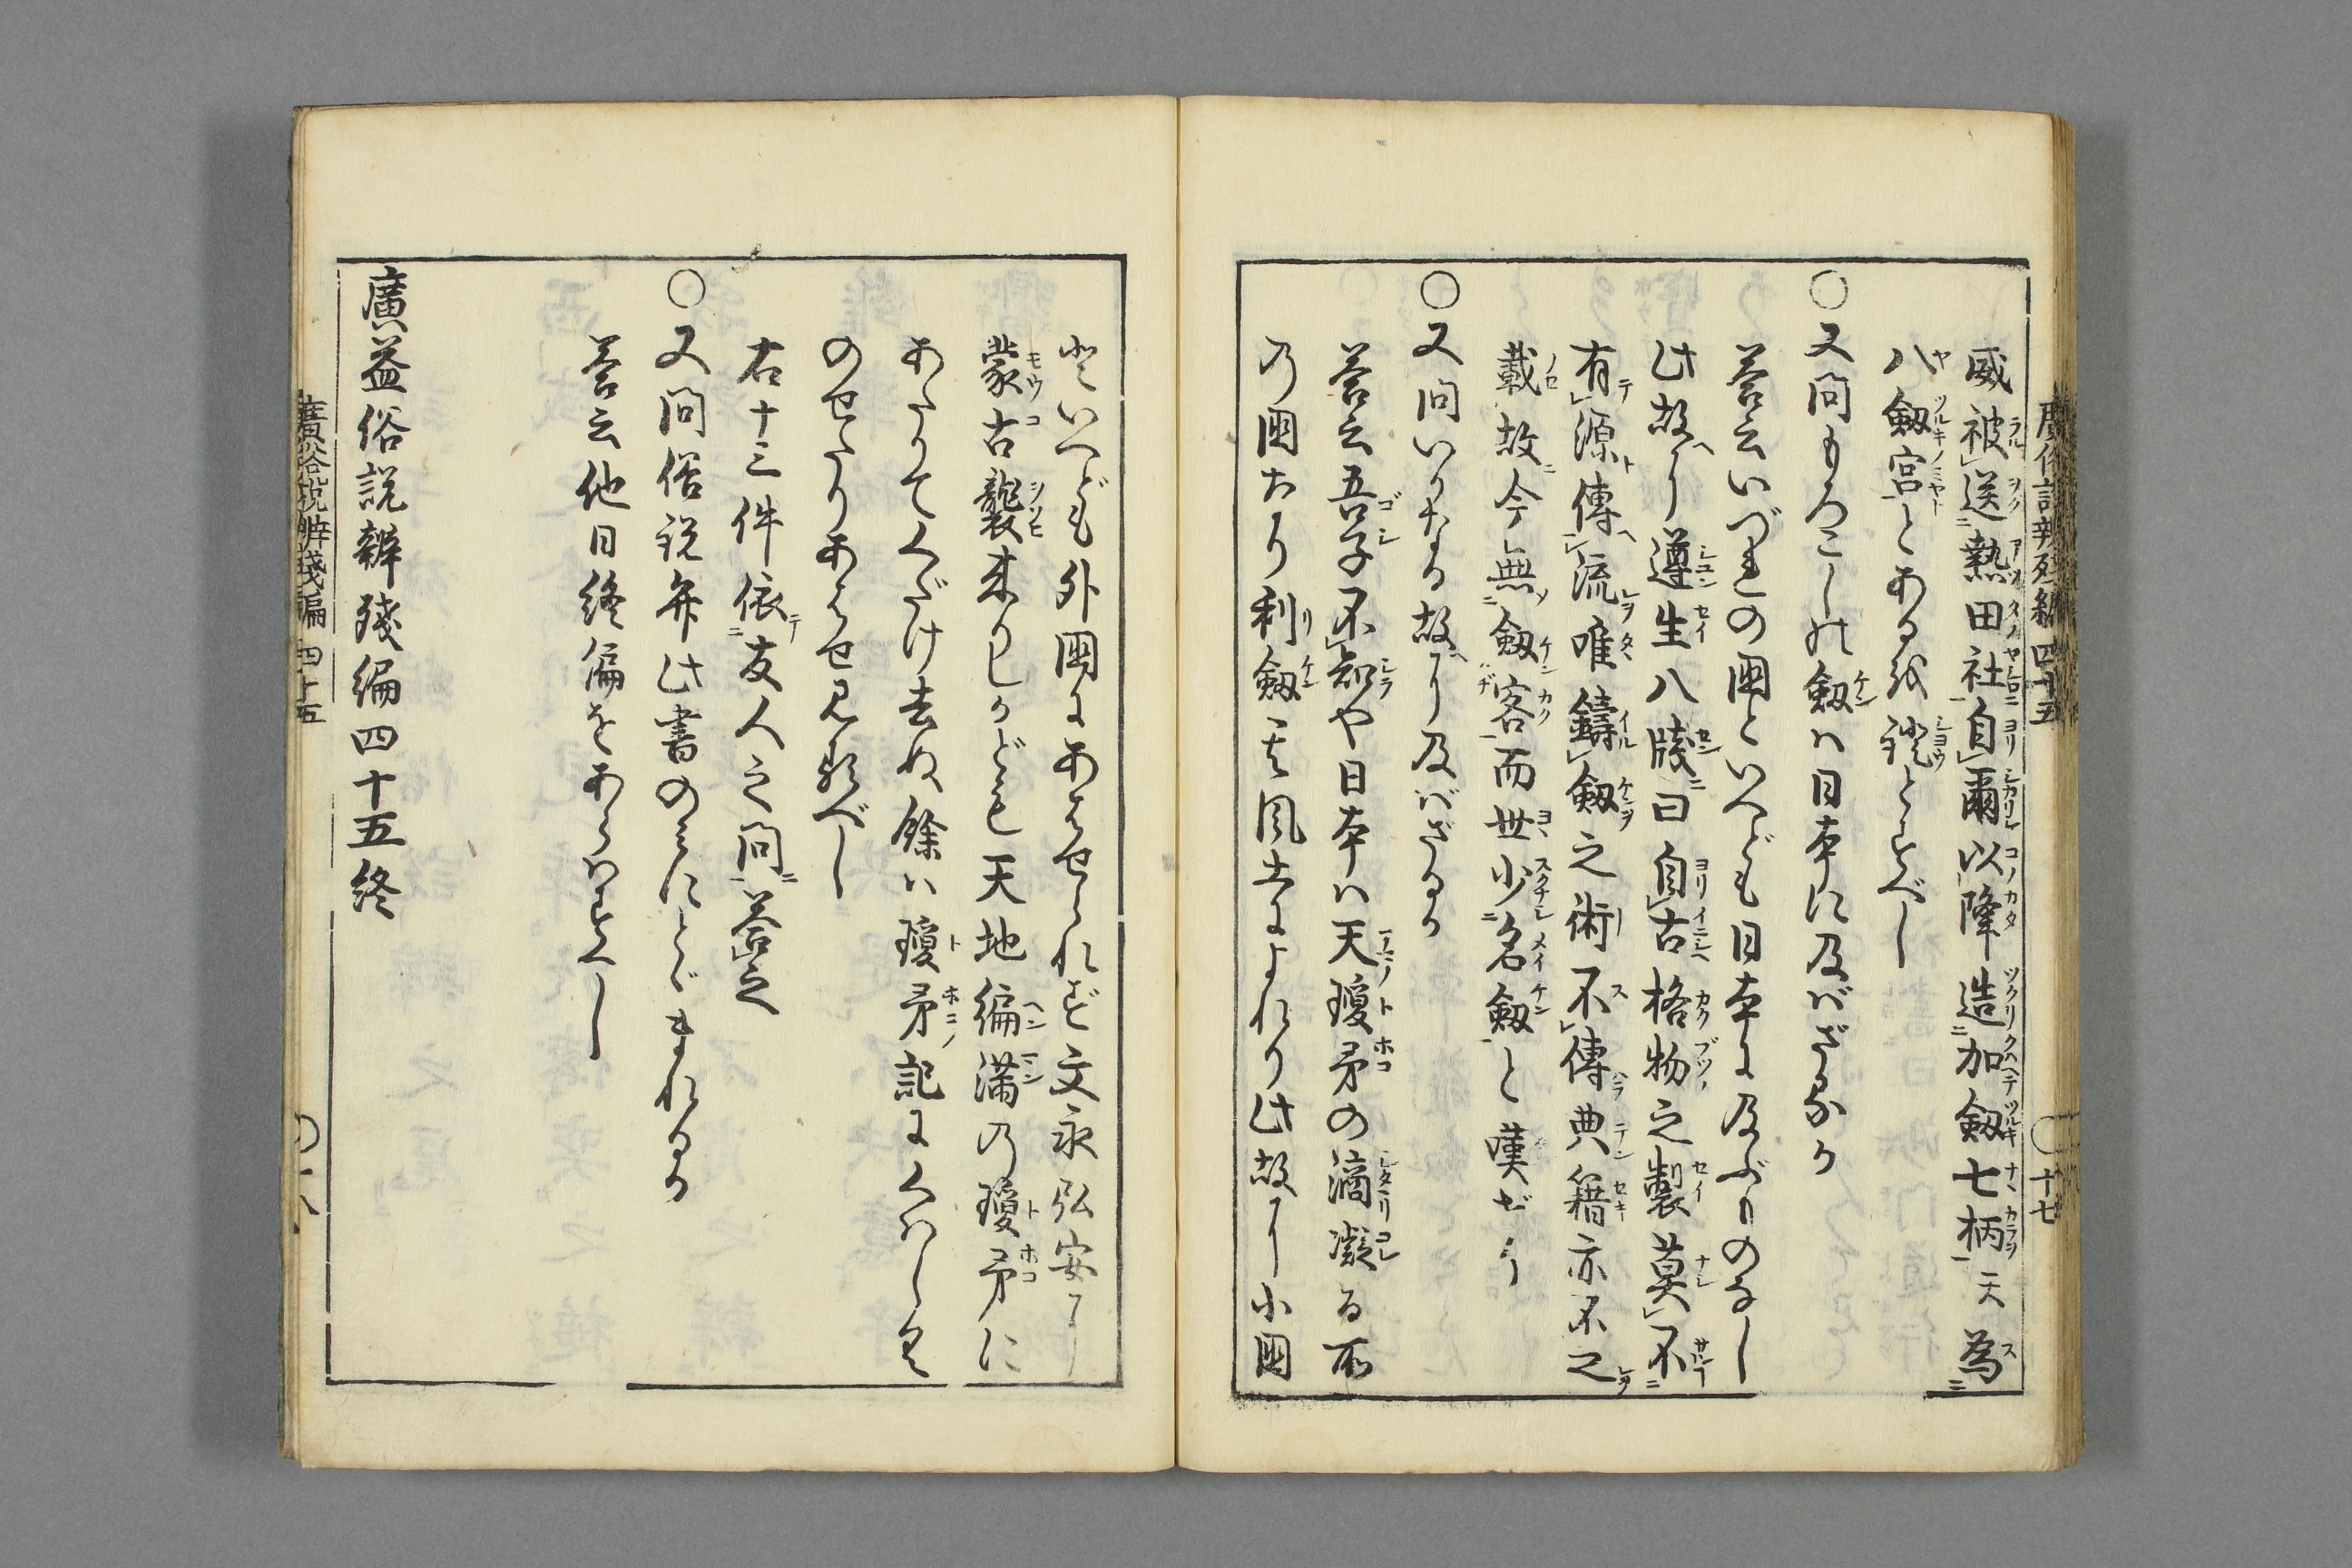 威被送熱田社自爾以降造加劔七柄天為
八劔宮とあるを證とすべし
〇又問もろこしの劔ハ日本に及ばざるか
荅云いづれの國といへども日本に及ぶものなし
此故に遵生八牋曰自古格物之製莫不
有源傳流唯鑄劔之術不傳典籍亦不之
載故今無劔客而世少名劔と嘆ぜり
〇又問いかなる故に及ばざるか
荅云吾子不知や日本ハ天瓊矛の滴凝る所
の國なり利劔其風土によれり此故に小國
といへども外國にあなどられず文永弘安に
蒙古襲来りしかども天地徧満の瓊矛に
あたりてくだけ去ぬ餘ハ瓊矛記にくハしく
のせたりあハせ見るべし
右十三件依友人之問荅之
〇又問俗説弁此書のミにとゞまれるか
荅云他日終偏をあらハすべし
廣益俗説辨殘編四十五終
廣俗説辨殘編 四十五
〇十七
廣俗説辨殘編 四十五